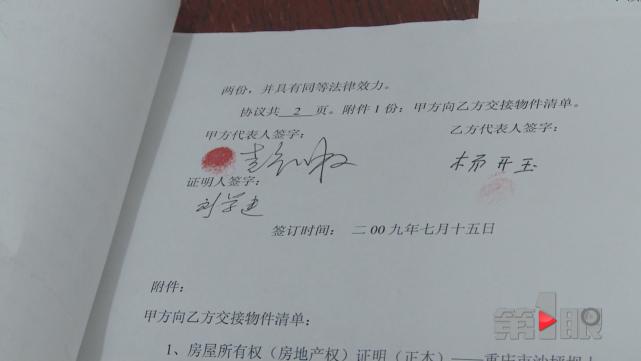 两份，并具有同等法律效力。
协议共 2 页。附件 1 份：甲方向乙方交接物件清单。
甲方代表人签字： 乙方代表人签字：
杨开玉
证明人签字：
刘学建
签订时间： 二 00 九年七月十五日
附件：
甲方向乙方交接物件清单：
1、房屋所有权（房地产权）证明（正本）——重庆市沙坪坝
第1眼